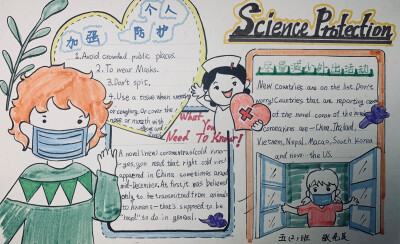 加强 个人
防护
1. Avoid crowded public places.
2. To wear Masks.
3. Don't spit.
4. Use a tissue when sneezing
or coughing. Or cover the
nose or mouth with
What You
Need To Know!
A novel (new) coronavirus (cold virus)
yes, you read that right cold virus
appeared in China sometimes around
mid-December. At first, it was believed
only to be transmitted from animals
to humans - that's supposed to be
"hard" to do in general.
Science Protection
New countries are on the list. Don't
worry! Countries that are reporting cases
of the novel coron of the
Coronavirus are - China, Thailand,
Vietnam, Nepal, Macao, South Korea
and now the US.
五(2)班